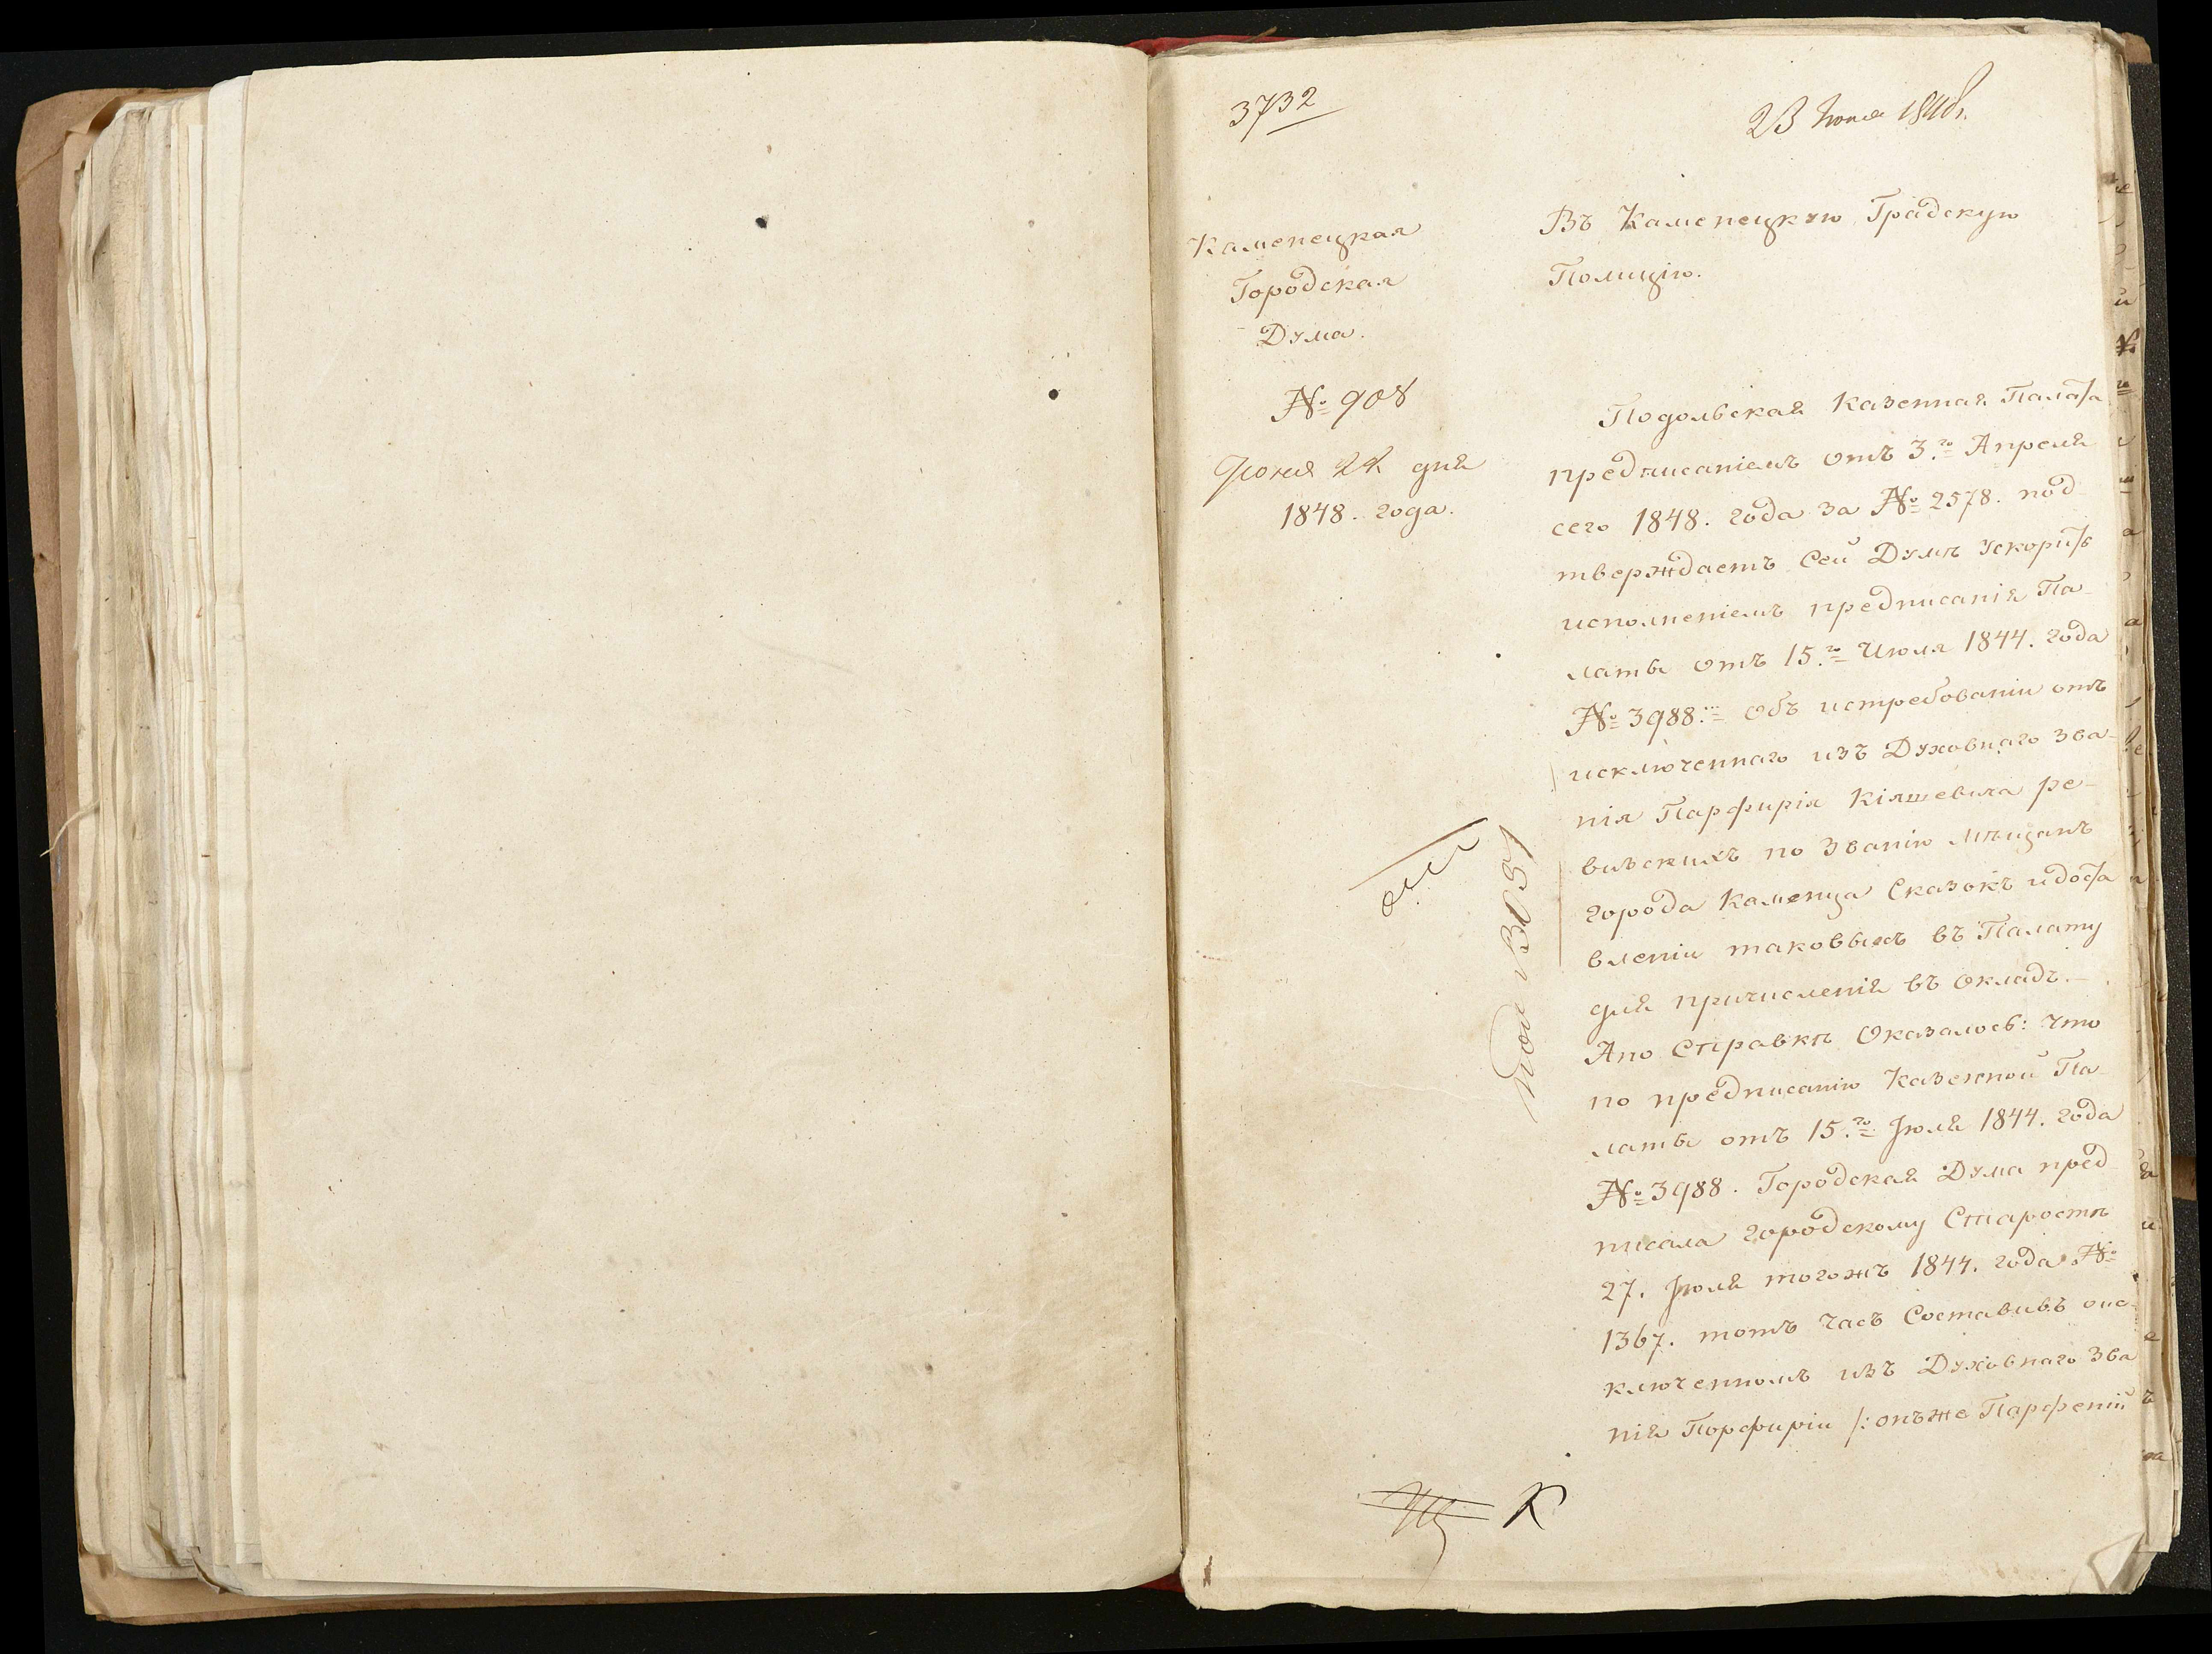 3732
23 Июня 1848 г.
Каменецкая
Городская
Дума.
№ 908
Июня 22 дня
1848. года.
Въ Каменецкую Градскую
Полицію.
Подольская Казенная Палата
предписаніемъ отъ 3.го Апреля
сего 1848. года за № 2578. под
тверждаетъ Сей Думѣ ускорить
исполненіемъ предписанія Па-
латы отъ 15.го Июля 1844. года
№ 3988. объ истребованіи отъ
исключеннаго изъ Духовнаго зва-
нія Парфирія Кіяшевича ре-
визскихъ по званію Мѣщанъ
города Каменца Сказокъ идоста
вленіи таковыхъ въ Палату
для причисленія въ окладъ.-
Апо Справкѣ Оказалось: что
по предписанію Казенной Па-
латы отъ 15.го Іюля 1844. года
№ 3988. Городская Дума пред
писала городскому Старостѣ
27. Іюля тогожъ 1844. года №
1367. тотъ часъ Составивъ оис-
ключенномъ изъ Духовнаго Зва
нія Порфиріи /: онъже Парфеній